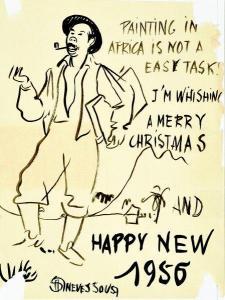 PAINTING IN
AFRICA IS NOT A
EASY TASK!
I'M WHISHING
A MERRY
CHRISTMAS
AND
HAPPY NEW
1956
NEVES SOUSA